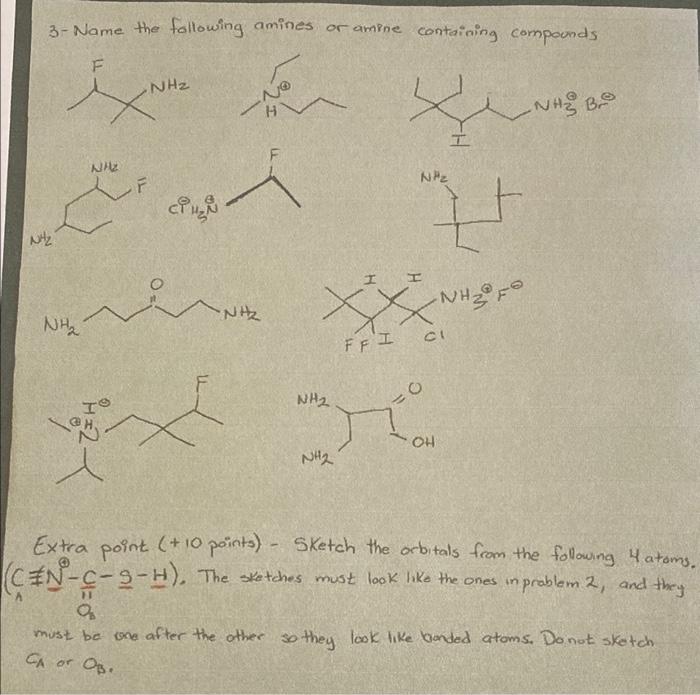 3- Name the following amines or amine containing compounds
F
NH2
N⊕
H
I
NH3⊕ Br⊖
NH2
F
NH2
Cl⊖ H3N⊕
F
NH2
NH2
O
NH2
I I
F F I Cl
NH3⊕ F⊖
I⊖
⊕H
N
F
NH2
NH2
O
OH
Extra point (+10 points) - Sketch the orbitals from the following 4 atoms.
(C≡N⊕-C-S-H). The sketches must look like the ones in problem 2, and they
A
O B
must be one after the other so they look like bonded atoms. Do not sketch
CA or OB.